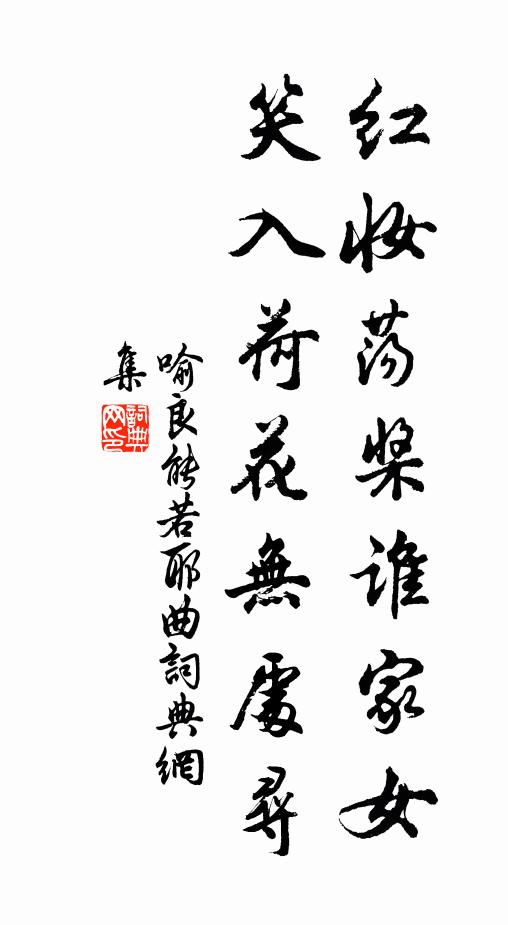 红妝荡槳谁家女
笑入荷花無處尋
喻良能若耶曲詞典網
集
詞典
网印